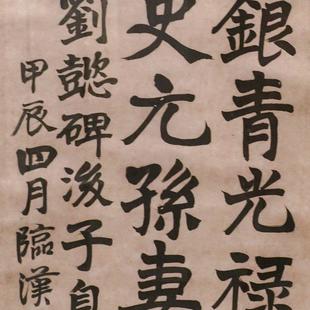 銀青光禄
史元孫妻
劉懿碑後子自
甲辰四月臨漢